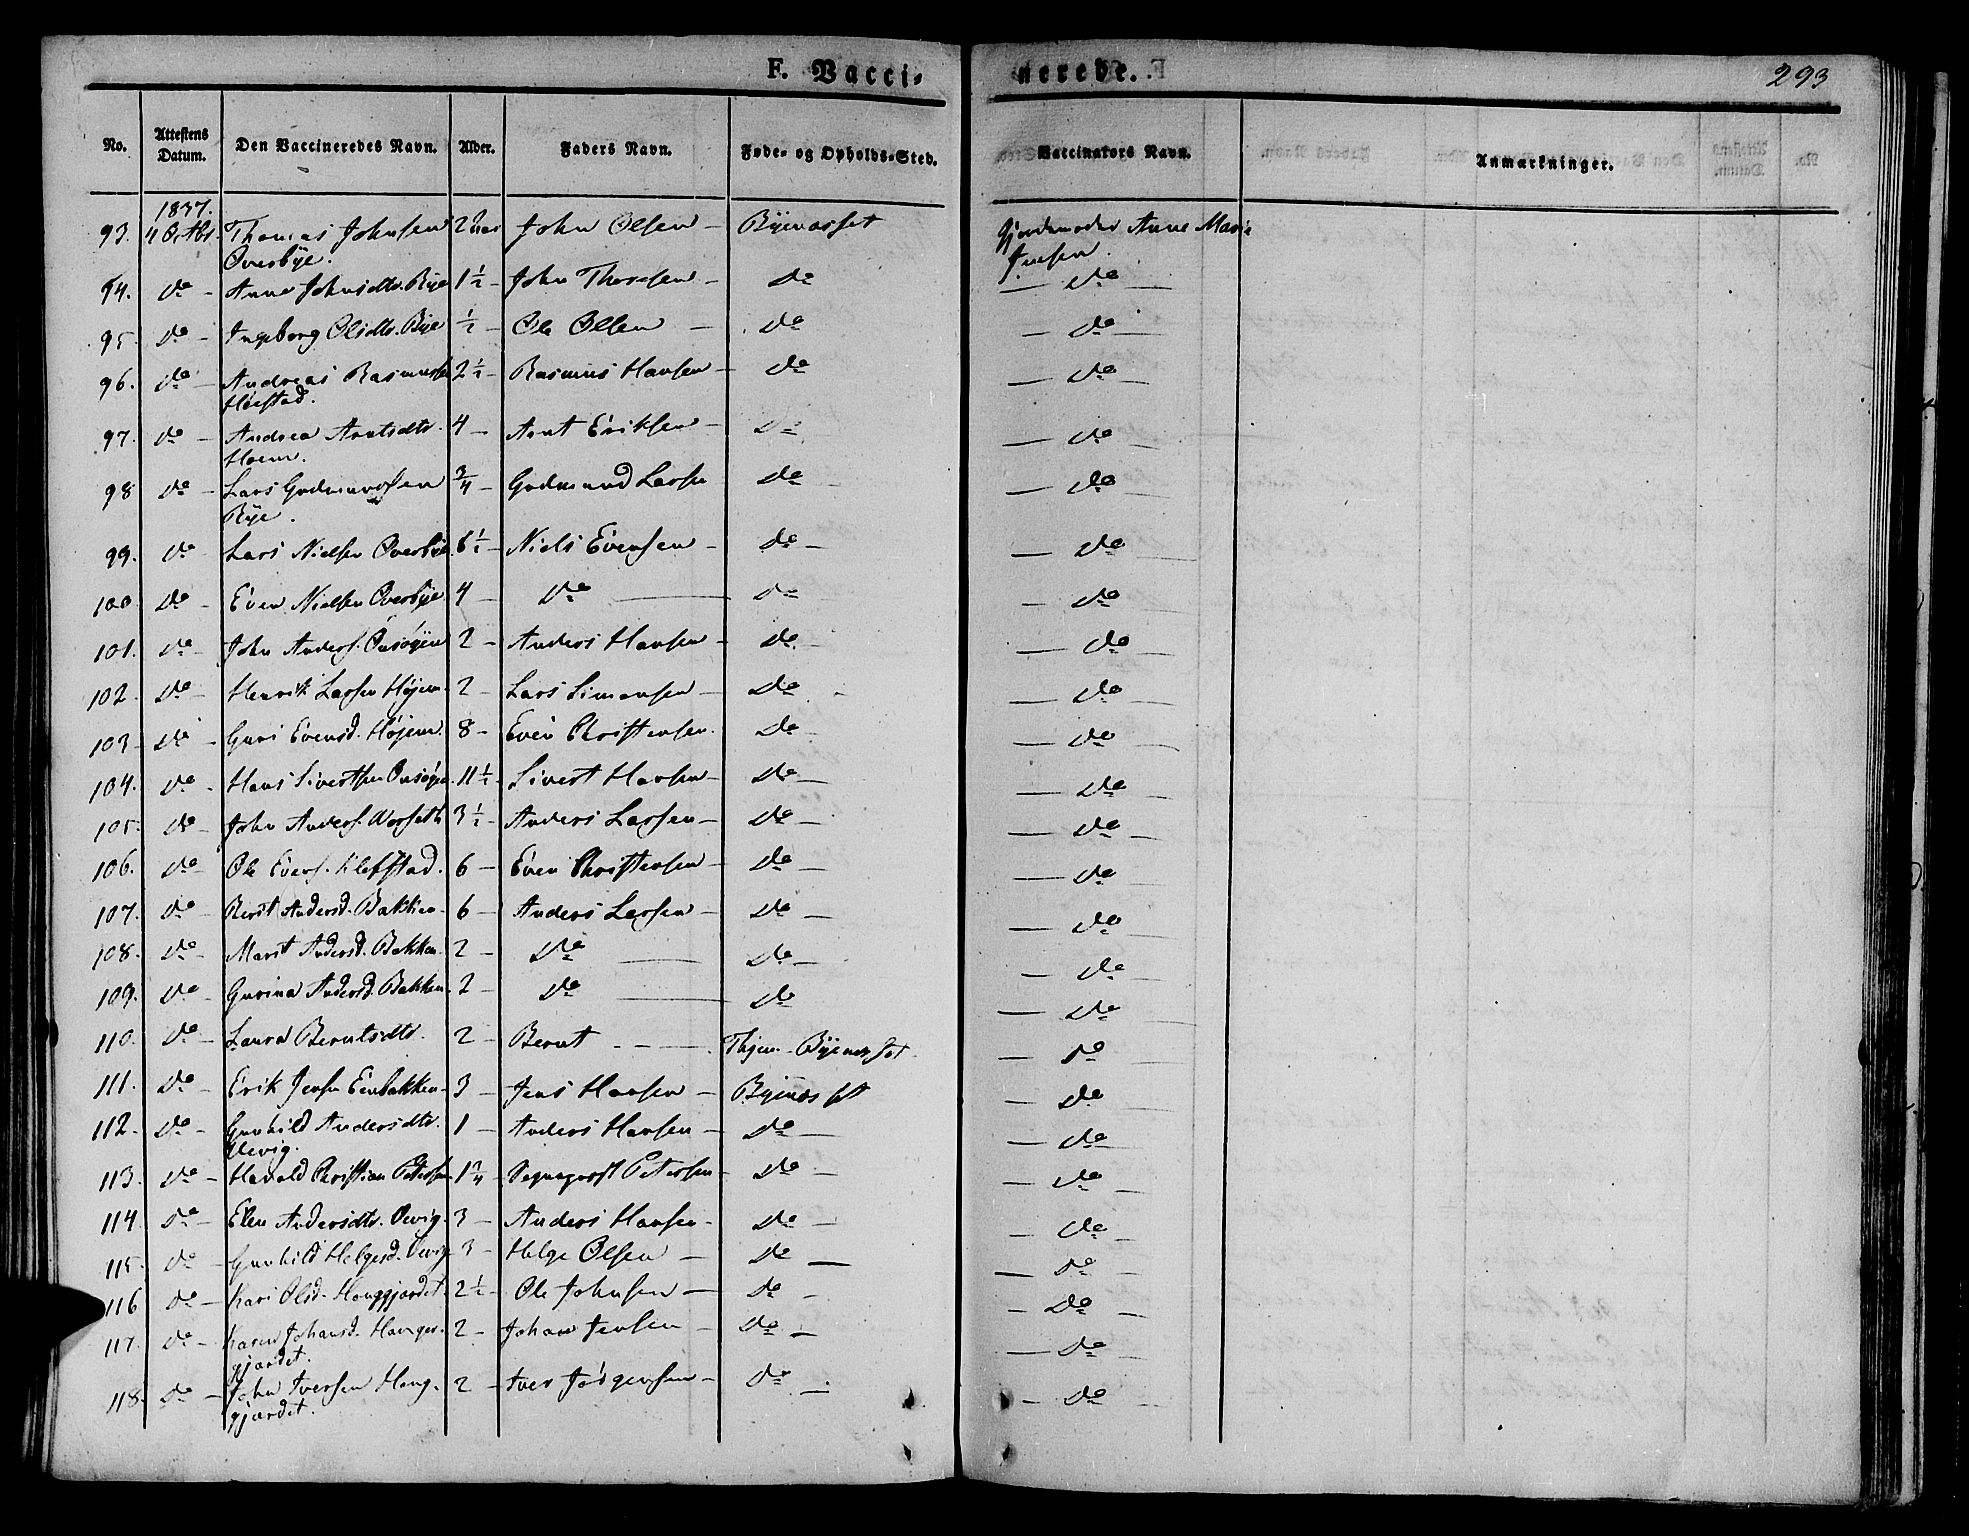 F. Vacci-
nerede.
293
No. Attestens Datum. Den Vaccineredes Navn. Alder. Faders Navn. Føde- og Opholds-Sted. Vaccinators Navn. Anmærkninger.
1837.
93. 4 Octbr. Thomas Johnsen 2 Aar John Olsen — Byenæsset Gjordemoder Anne Marie
Overbye. Jensen.
94. do - Anne Johnsdtr. Bye 1½ - John Thoresen - do — do —
95. do - Ingeborg Olsdtr. Bye ½ - Ole Olsen — do — do —
96. do - Andreas Rasmussen 2½ - Rasmus Hansen - do — do —
Høistad.
97. do - Andrea Arntsdtr. 4 - Arnt Eriksen - do — do —
Hoem.
98 do - Lars Godmundsen ¾ - Godmund Larsen do — do —
Bye.
99. do Lars Nielsen Overbye 6½ - Niels Evensen - do - — do —
100. do - Even Nielsen Overbye 4 - do — do — do —
101. do - John Anders. Onsøyen 2 - Anders Hansen - do - — do —
102. do - Henrik Larsen Højem. 2 - Lars Simonsen - do - — do —
103- do - Guri Evensd. Højem 8 - Even Christensen. do — do —
104. do - Hans Sivertsen Onsøyen. 11½ - Sivert Hansen - do — — do —
105. do - John Anders. 3½ - Anders Larsen - do — — do —
106. do - Ole Evens. Klefstad. 6 - Even Christensen - do — — do —
107. do - Berit Andersd. Bakken - 6 - Anders Larsen - do — — do —
108. do - Marit Andersd. Bakken. 2 - do — do — — do —
109. do - Gurina Andersd. Bakken. 2 - do — do — do —
110. do - Laura Berntsdtr. 2 - Bernt - — - Byenæsset — do —
111. do - Erik Jensen 3 - Jens Hansen - Byenæsset — do —
112. do - Gunhild Andersdtr. 1 - Anders Hansen - do — — do —
113. do - Harald Christian Petersen. 1¾ - Petersen - do — — do —
114. do - Elen Andersdtr. 3 - Anders Hansen - do — — do —
115. do - Gunhild Helgesd. 3 - Helge Olsen - do — — do —
116 do - Kari Olsd. Houggjærdet. 2½ - Ole Johnsen - do - — do —
117. do - Karen Johansd. 2 - Johan Jensen - do — — do —
gjærdet.
118. do - John Iversen Houg- 2 - Iver Jørgensen - do — — do —
gjærdet.